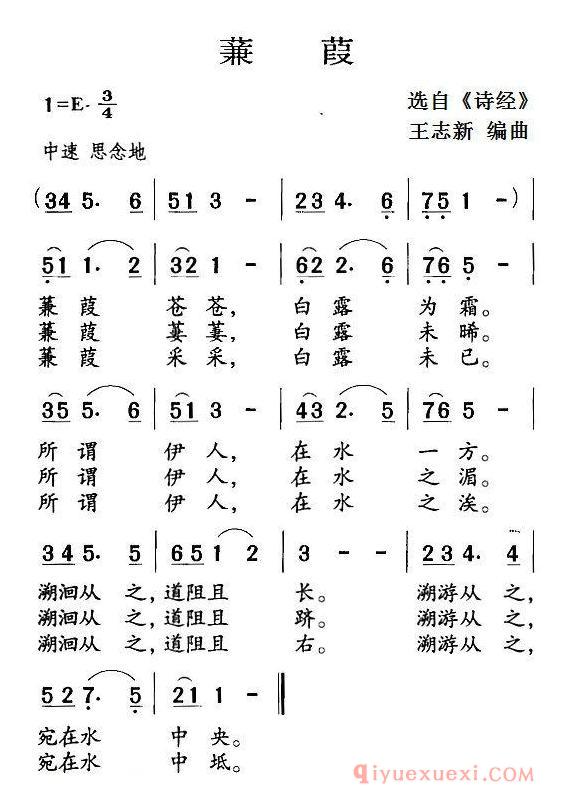 蒹 葭
1=E 3/4
选自《诗经》
王志新 编曲
中速 思念地
(345. 6 | 513 - | 234. 6 | 751 - ) |
511. 2 | 321 - | 622. 6 | 765 - |
蒹葭 苍苍, 白露 为霜。
蒹葭 萋萋, 白露 未晞。
蒹葭 采采, 白露 未已。
355. 6 | 513 - | 432. 5 | 765 - |
所谓 伊人, 在水 一方。
所谓 伊人, 在水 之湄。
所谓 伊人, 在水 之涘。
345. 5 | 6512 | 3 - - | 234. 4 |
溯洄从 之,道阻且 长。 溯游从 之,
溯洄从 之,道阻且 跻。 溯游从 之,
溯洄从 之,道阻且 右。 溯游从 之,
527. 5 | 211 - ‖
宛在水 中央。
宛在水 中坻。
qiyuexuexi.com